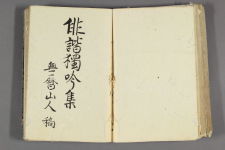 俳諧獨吟集
無曆山人 稿